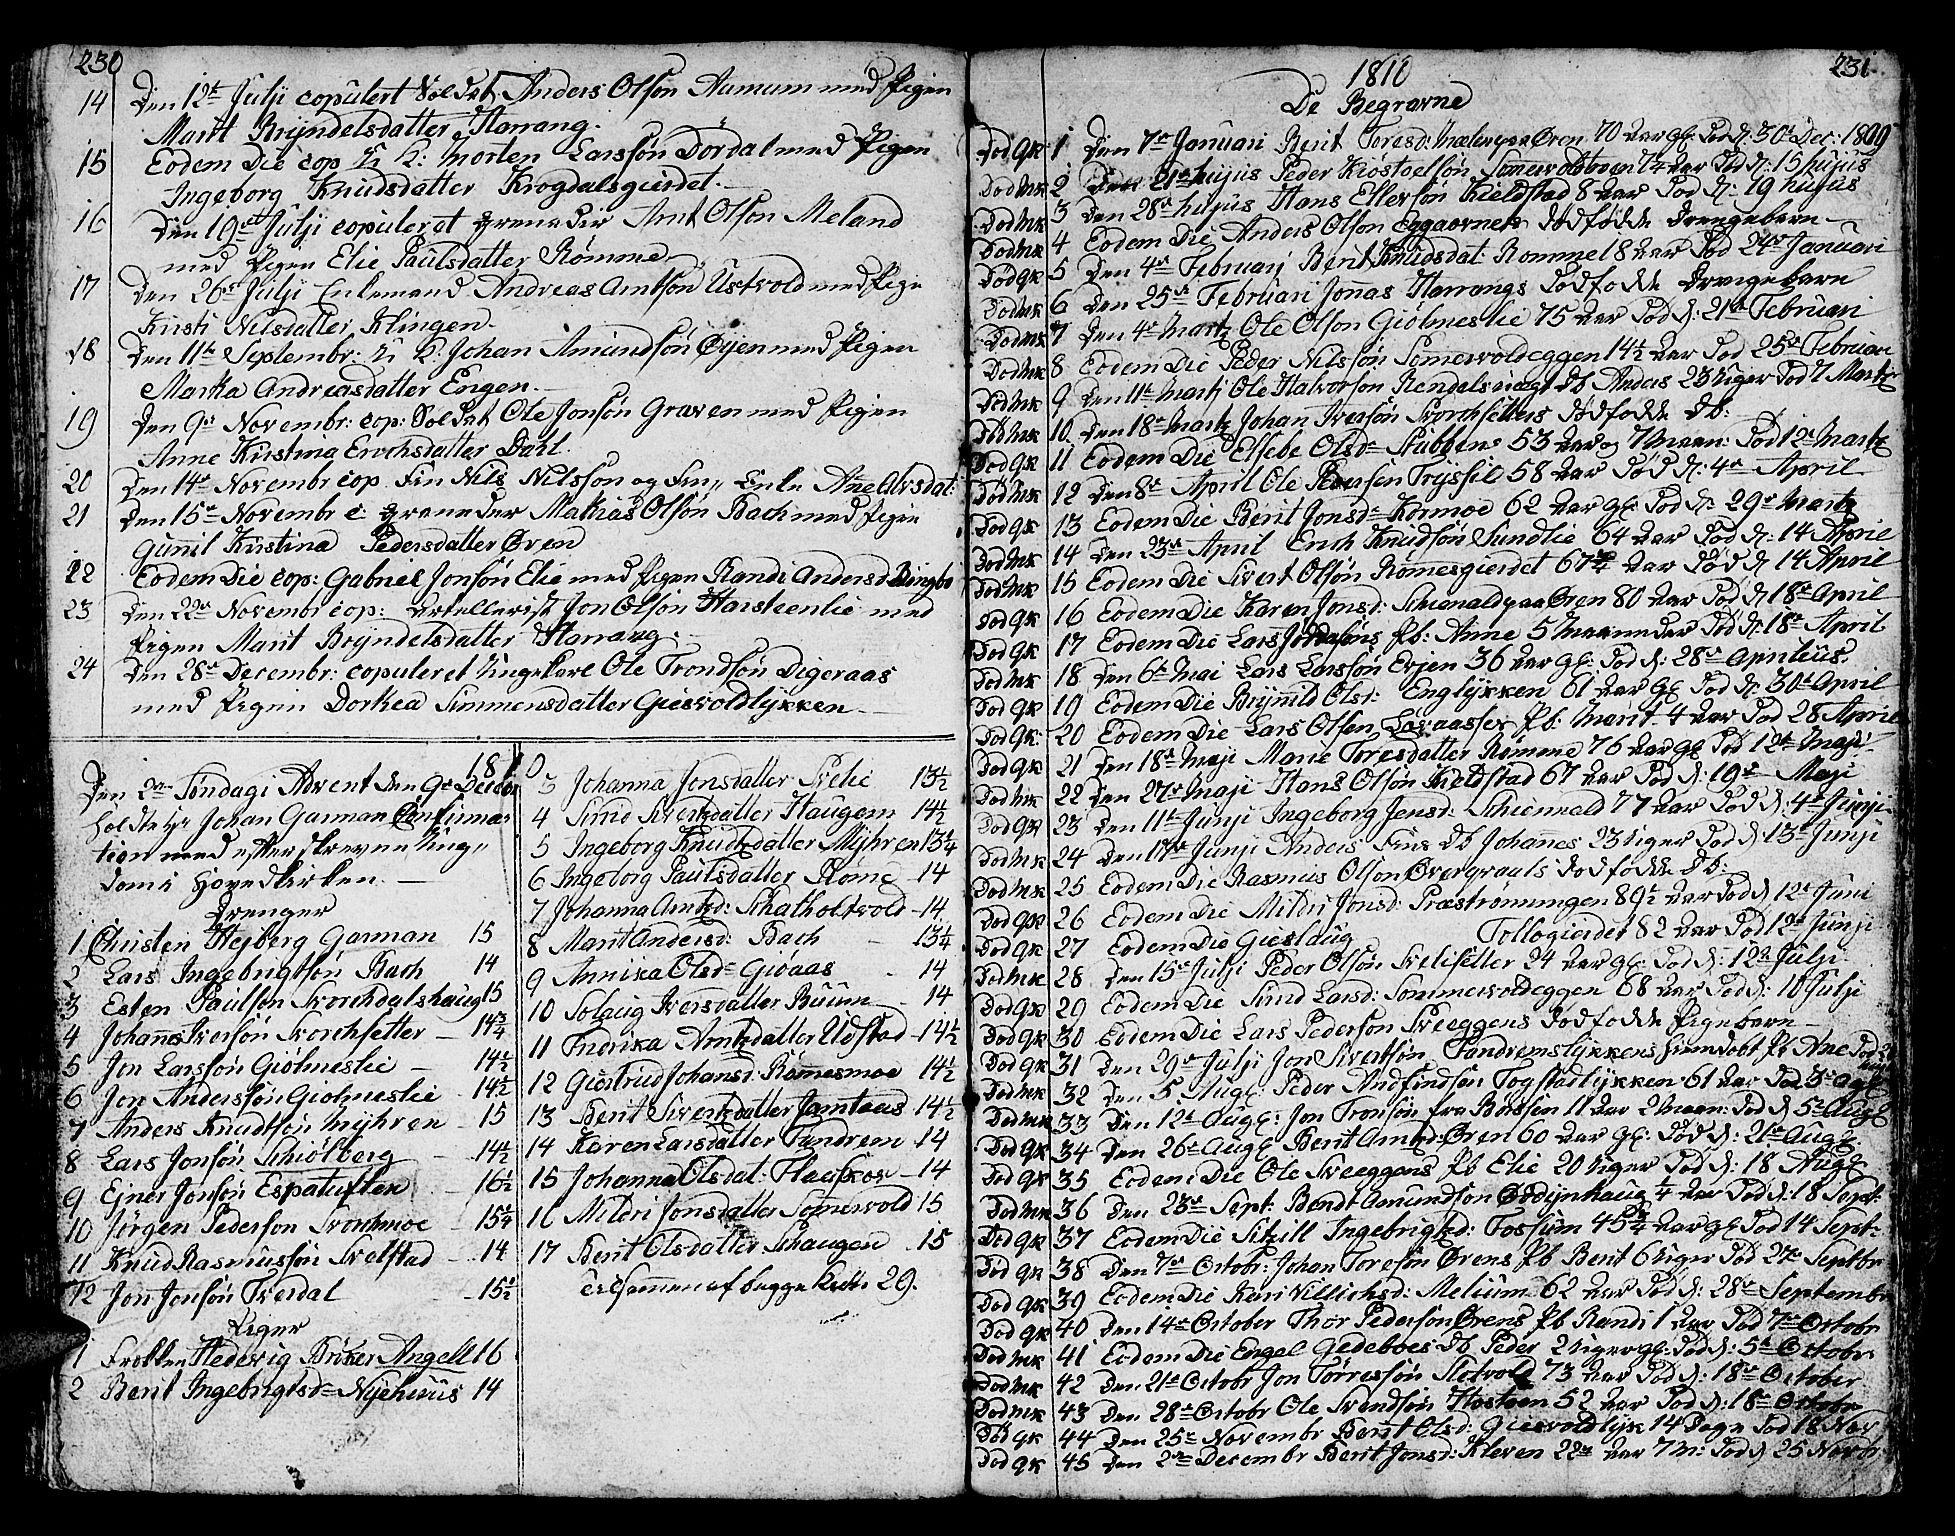 230
14 Den 12te Julji copulert Soldat Anders Olsøn Aumum med Pigen
Marit Bryndelsdatter Harrang.
15 Eodem Die cop U: K: Morten Larssøn Dørdal med Pigen
Ingeborg Knudsdatter Krogdalsgierdet.
16 Den 19de Julji copuleret Grenader Arnt Olsøn Meland
med Pigen Elie Paulsdatter Rømme
17 Den 26de Julji Enkemand Andreas Arntsøn Ustvold med Pige
Kirsti Nilsdatter Klingen.
18 Den 11te Septembr: U: K: Johan Amundsøn Øyen med Pigen
Marka Andreasdatter Engen.
19 Den 9de Novembr: cop: Soldat Ole Jonsøn Graven med Pigen
Anne Kirstina Erichsdatter Dahl.
20 Den 14de Novembr cop Fin Nils Nilssøn og Fin Enke Ane Alvsdat:
21 Den 15de Novembr c: Grenader Mathias Olsøn Bach med Pigen
Gunnil Kirstina Pedersdatter Øren
22 Eodem Die cop: Gabriel Jonsøn Elie med Pigen Randi Andersd
23 Den 22de Novembr cop: Artellerist Jon Olsøn Harsteenlie med
Pigen Marit Bryndelsdatter Harrang.
24 Den 28de Decembr: copuleret Ungekarl Ole Trondsøn Digeraas
med Pigen Dorthea Simmensdatter Giesvoldlykken.
1810
Den 2den Søndag i Advent den 9de Decbr
holdt Hr Johan Garman Confirma
tion med efterskrevne Ung
dom i Hovedkirken.
Drenger
1 Christen Hejberg Garman 15
2 Lars Ingebrigtsøn Bach 14
3 Esten Paulsøn Svorchdalshaug 15
4 Johannes Iversøn Svorchsetter 14 3/4
5 Jon Larssøn Giølmeslie 14 1/2
6 Jon Anderssøn Giolmeslie 14 1/2
7 Anders Knudtsøn Myhren 15
8 Lars Jonsøn Schiølberg 14 1/2
9 Ejner Jonsøn Espatuften 16 1/2
10 Jørgen Pedersøn Svorchmoe 15 1/4
11 Knud Rasmussøn Qvelstad 14
12 Jon Jonsøn Tverdal 15 1/2
Piger
1 Frøkken Hedevig Brøker Angell 16
2 Berit Ingebrigtsd: Nyehuus 14
3 Johanna Jonsdatter Solie 13 1/2
4 Sirid Sivertsdatter Haugem 14 1/2
5 Ingeborg Knudtzdatter Myhren 13 3/4
6 Ingeborg Paulsdatter Rømme 14
7 Johanna Arntzd: Schatholtvold 14
8 Marit Andersd: Bach 13 3/4
9 Annika Olsd: Gjøaas 14
10 Solaug Iversdatter Buum 14
11 Fredrika Arntzdatter Udstad 14 1/2
12 Giørtrud Johansd: Rømesmoe 14 1/2
13 Berit Sivertzdatter Jamtaas 14 1/2
14 Karen Larsdatter Tandrem 14
15 Johanna Olsdat: Flaaskoe 14
16 Mildri Jonsdatter Somervold 15
17 Berit Olsdatter Schaugen 15
Tilsammen af begge Kiøn 29.
231
1810
De Begravne
Død GK 1 Den 7de Januari Berit Toresd: Øren 70 aar gl: Død d: 30te Dec: 1809
Død MK 2 Den 21de hujus Peder Kiøstoelsøn 74 aar Død d: 15 hujus
Død MK 3 Den 28de hujus Hans Ellefsøn Kieldstad 8 aar Død d: 19 hujus
Død MK 4 Eodem Die Anders Olsøn Eggaavnets Dødfødde Drengebarn
Død GK 5 Den 4de Februarj Berit Knudsdat: Rømme 18 aar Død 24de Januari
Død MK 6 Den 25de Februari Jonas Harrangs Dødfødde Drengebarn
Død MK 7 Den 4de Martz Ole Olsøn Giølmeslie 75 aar Død d: 21de Februari
Død MK 8 Eodem Die Peder Nilssøn Somervoldeggen 14 1/2 aar Død 25de Februari
Død MK 9 Den 11te Martj Ole Halvorsøn Db Anders 23 Uger Død 7 Martz
Død MK 10 Den 18de Martz Johan Iversøn Svorchsetters Dødfødde Db:
Død GK 11 Eodem Die Elsebe Olsd: Stubben 53 aar og 7 Maan: Død 12de Martz
Død MK 12 Den 8de April Ole Pedersøn Tryssil 58 aar Død d: 4de April
Død GK 13 Eodem Die Berit Jonsd: Kormoe 62 aar gl: Død d: 29de Martz
Død MK 14 Den 23de April Erich Knudsøn Sundlie 64 aar Død d: 14 April
Død MK 15 Eodem Die Sivert Olsøn Rømesgierdet 67 3/4 aar Død d: 14 April
Død GK 16 Eodem Die Karen Jonsd: Schienald paa Øren 80 aar Død d: 18de April
Død GK 17 Eodem Die Lars Pb: Anne 5 Maaneder Død d: 18de April
Død MK 18 Den 6te Mai Lars Larssøn Evjen 36 aar gl: Død d: 28de Aprilius.
Død GK 19 Eodem Die Brynild Olsd: Englykken 61 aar gl Død d: 30te April
Død GK 20 Eodem Die Lars Olsøn Pb: Marit 4 aar Død 28 April
Død GK 21 Den 18de Maji Marie Toresdatter Rømme 76 aar gl Død 12te Maji
Død MK 22 Den 27de Maji Hans Olsøn Kieldstad 67 aar Død d: 19de Maji
Død GK 23 Den 11te Junji Ingeborg Jensd: Schienald 77 aar Død d: 4de Junji
Død MK 24 Den 17de Junji Anders Fins Db Johannes 23 Uger Død d: 13de Junji
Død MK 25 Eodem Die Rasmus Olsøn Overgraats Dødfødde Db:
Død GK 26 Eodem Die Mildri Jonsd: Præstrønningen 89 1/2 aar Død d: 12te Juni
Død GK 27 Eodem Die Gieslaug Tollogierdet 82 aar Død 12te Junji
Død MK 28 Den 15de Julji Peder Olsøn Solisetter 24 aar gl: Død d: 12te Julji
Død GK 29 Eodem Die Sirid Larsd: Sommervoldeggen 68 aar Død d: 10 Julji
Død GK 30 Eodem Die Lars Pedersøn Sveeggens Dødfødde Pigebarn
Død GK 31 Den 29de Julji Jon Sivertsøn Tandremslykkens hiemdøbt Pb Ane Død
Død MK 32 Den 5 Aug: Peder Andfindsøn Togstadlykken 61 aar Død 3de Aug
Død MK 33 Den 12te Aug: Jon Tronsøn fra Børssen 11 aar 2 Maan: Død d 5te Aug
Død GK 34 Den 26de Aug: Berit Arntzd: Øren 60 aar gl: Død d: 21de Aug:
Død GK 35 Eodem Die Ole Sveeggens Pb Elie 20 Uger Død d: 18 Aug
Død MK 36 Den 23de Sept: Bendt Amundsøn 1/4 aar Død d: 18 Sept:
Død GK 37 Eodem Die Sitzill Ingebrigtsd: Fossum 45 3/4 aar gl Død 14 Sept:
Død GK 38 Den 7de Octobr: Johan Toresøn Ørens Pb Berit 6 Uger Død 27de Septbr
Død GK 39 Eodem Die Kari Villichsd: Melium 62 aar Død d: 28de Septembr
Død GK 40 Den 14de October Thor Pedersøn Ørens Pb Randi 1 aar Død 7de Octobr
Død MK 41 Eodem Die Engel Gedeboes Db Peder 2 Uger gl: Død d: 5te Octobr
Død MK 42 Den 21de Octobr Jon Tørressøn Slotvold 73 aar Død d: 18de October
Død MK 43 Den 28de Octobr Ole Svendsøn Hostoen 52 aar Død d: 18de Octobr
Død GK 44 Den 25de Novembr Berit Olsd: Giesvoldlyk 14 Dage Død 18 Nov
Død GK 45 Den 2den Decembr Berit Jonsd: Kleven 22 aar 7 M: Død d 25 Novbr